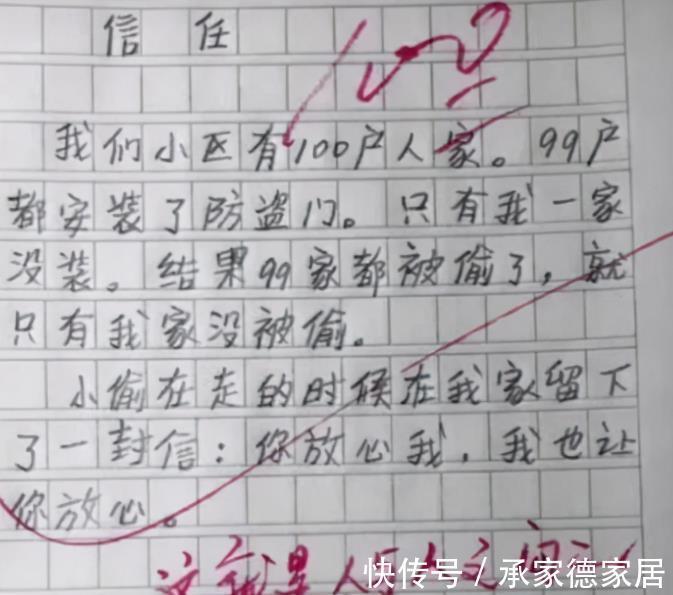 信任
我们小区有100户人家。99户
都安装了防盗门。只有我一家
没装。结果99家都被偷了，就
只有我家没被偷。
小偷在走的时候在我家留下
了一封信：你放心我，我也让
你放心。
这就是人与人之间
快传号/承家德家居